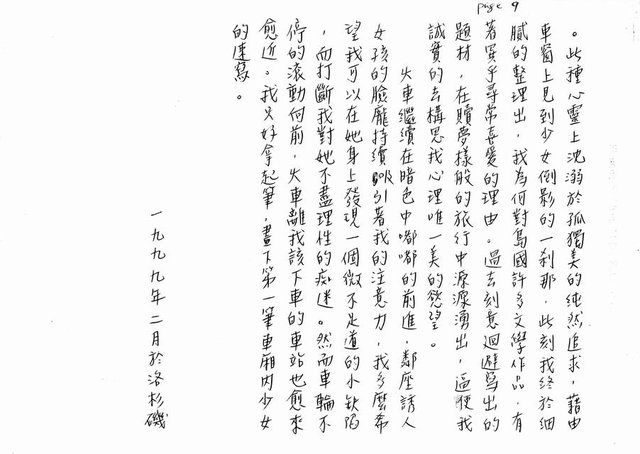 page 9
。此種心靈上沈溺於孤獨美的純然追求，藉由
車窗上見到少女倒影的一刹那，此刻我終於細
膩的整理出，我為何對島國許多文學作品，有
著異乎尋常喜愛的理由。過去刻意迴避寫出的
題材，在贖夢樣般的旅行中源源湧出，逼使我
誠實的去構思我心理唯一美的慾望。
火車繼續在暗色中嘟嘟的前進，鄰座誘人
女孩的臉龐持續吸引著我的注意力，我多麼希
望我可以在她身上發現一個微不足道的小缺陷
，而打斷我對她不盡理性的痴迷。然而車輪不
停的滾動向前，火車離我該下車的車站也愈來
愈近。我只好拿起筆，畫下第一筆車廂內少女
的速寫。
一九九九年二月於洛杉磯